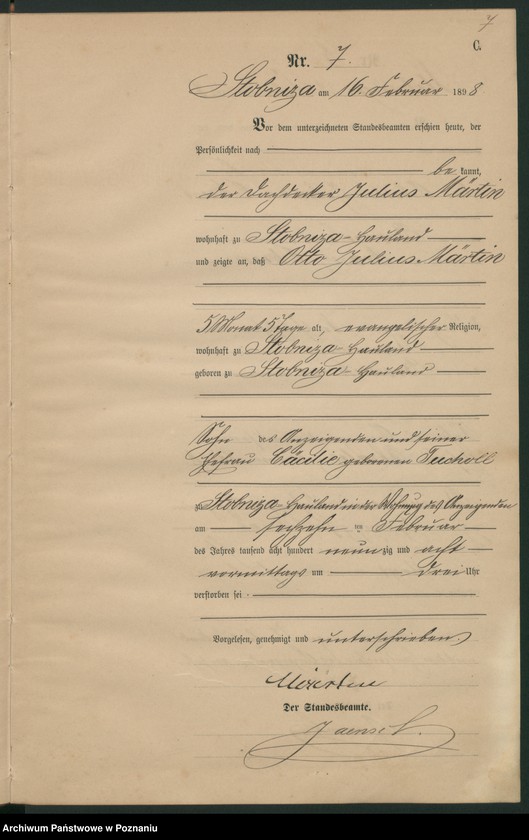 7
C.
Nr. 7.
Stobniza am 16. Februar 1898
Vor dem unterzeichneten Standesbeamten erschien heute, der
Persönlichkeit nach
be kannt,
der Dachdecker Julius Märtin
wohnhaft zu Stobniza-Hauland
und zeigte an, daß Otto Julius Märtin
5 Monat 5 Tage alt, evangelischer Religion,
wohnhaft zu Stobniza Hauland
geboren zu Stobniza Hauland
Sohn des Anzeigenden und seiner
Ehefrau Cäcilie geborenen Tucholl
zu Stobniza-Hauland in der Wohnung des Anzeigenden
am sechzehn ten Februar
des Jahres tausend acht hundert neun zig und acht
vormittags um drei Uhr
verstorben sei.
Vorgelesen, genehmigt und unterschrieben.
Der Standesbeamte.
Archiwum Państwowe w Poznaniu